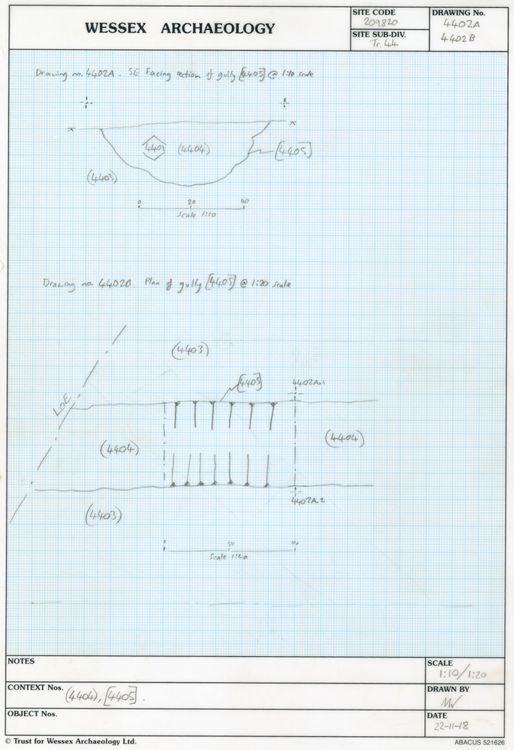 WESSEX ARCHAEOLOGY
SITE CODE
209820
SITE SUB-DIV.
Tr. 44
DRAWING No.
4402A
4402B
Drawing no. 4402A. SE Facing section of gully [4405] @ 1:10 scale
(4404)
[4405]
(4403)
0 20 40
Scale 1:10
Drawing no. 4402B Plan of gully [4405] @ 1:20 scale
(4403)
[4405]
4402A.1
LOE
(4404)
(4404)
4402A.2
(4403)
Scale 1:20
NOTES
SCALE
1:10/1:20
CONTEXT Nos. (4404), [4405].
DRAWN BY
OBJECT Nos.
DATE
22-11-18
© Trust for Wessex Archaeology Ltd.
ABACUS 521626